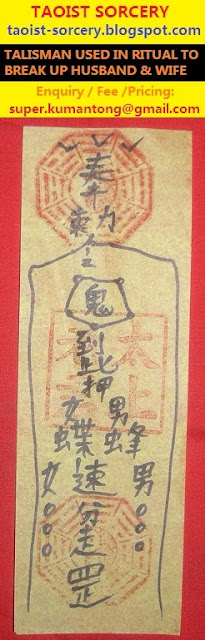 TAOIST SORCERY
taoist-sorcery.blogspot.com
TALISMAN USED IN RITUAL TO
BREAK UP HUSBAND & WIFE
Enquiry / Fee /Pricing:
super.kumantong@gmail.com
鬼
到此押
女 男
蝶 蜂
女 速 男
分
走
罡
太上